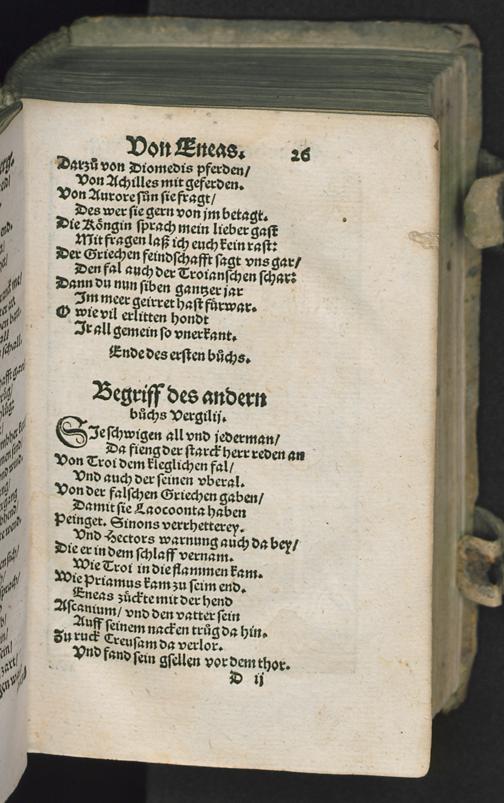 Von Æneas. 26
Darzů von Diomedis pferden/
Von Achilles mit geferden.
Von Aurore sün sie fragt/
Des wer sie gern von jm betagt.
Die Köngin sprach mein lieber gast
Mit fragen laß ich euch kein rast:
Der Griechen feindschafft sagt vns gar/
Den fal auch der Troianschen schar:
Dann du nun siben gantzer jar
Im meer geirret hast fürwar.
O wie vil erlitten hondt
Ir all gemein so vnerkant.
Ende des ersten bůchs.
Begriff des andern
bůchs Vergilij.
SIe schwigen all vnd jederman/
Da fieng der starck herr reden an
Von Troi dem kleglichen fal/
Vnd auch der seinen vberal.
Von der falschen Griechen gaben/
Damit sie Laocoonta haben
Peinget. Sinons verrhetterey.
Vnd Hectors warnung auch da bey/
Die er in dem schlaff vernam.
Wie Troi in die flammen kam.
Wie Priamus kam zu seim end.
Eneas zückte mit der hend
Ascanium/ vnd den vatter sein
Auff seinem nacken trůg da hin.
Zu ruck Creusam da verlor.
Vnd fand sein gsellen vor dem thor.
D ij